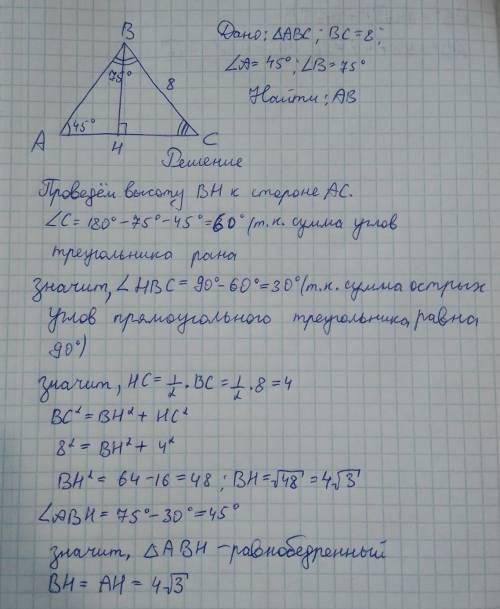 B
75°
8
A
45°
H
C
Дано: ΔABC; BC = 8;
∠A = 45°; ∠B = 75°
Найти: AB
Решение
Проведём высоту BH к стороне AC.
∠C = 180° - 75° - 45° = 60° (т.к. сумма углов
треугольника рана
значит, ∠HBC = 90° - 60° = 30° (т.к. сумма острых
углов прямоугольного треугольника равна
90°)
значит, HC = 1/2 · BC = 1/2 · 8 = 4
BC² = BH² + HC²
8² = BH² + 4²
BH² = 64 - 16 = 48 ; BH = √48 = 4√3
∠ABH = 75° - 30° = 45°
значит, ΔABH - равнобедренный
BH = AH = 4√3